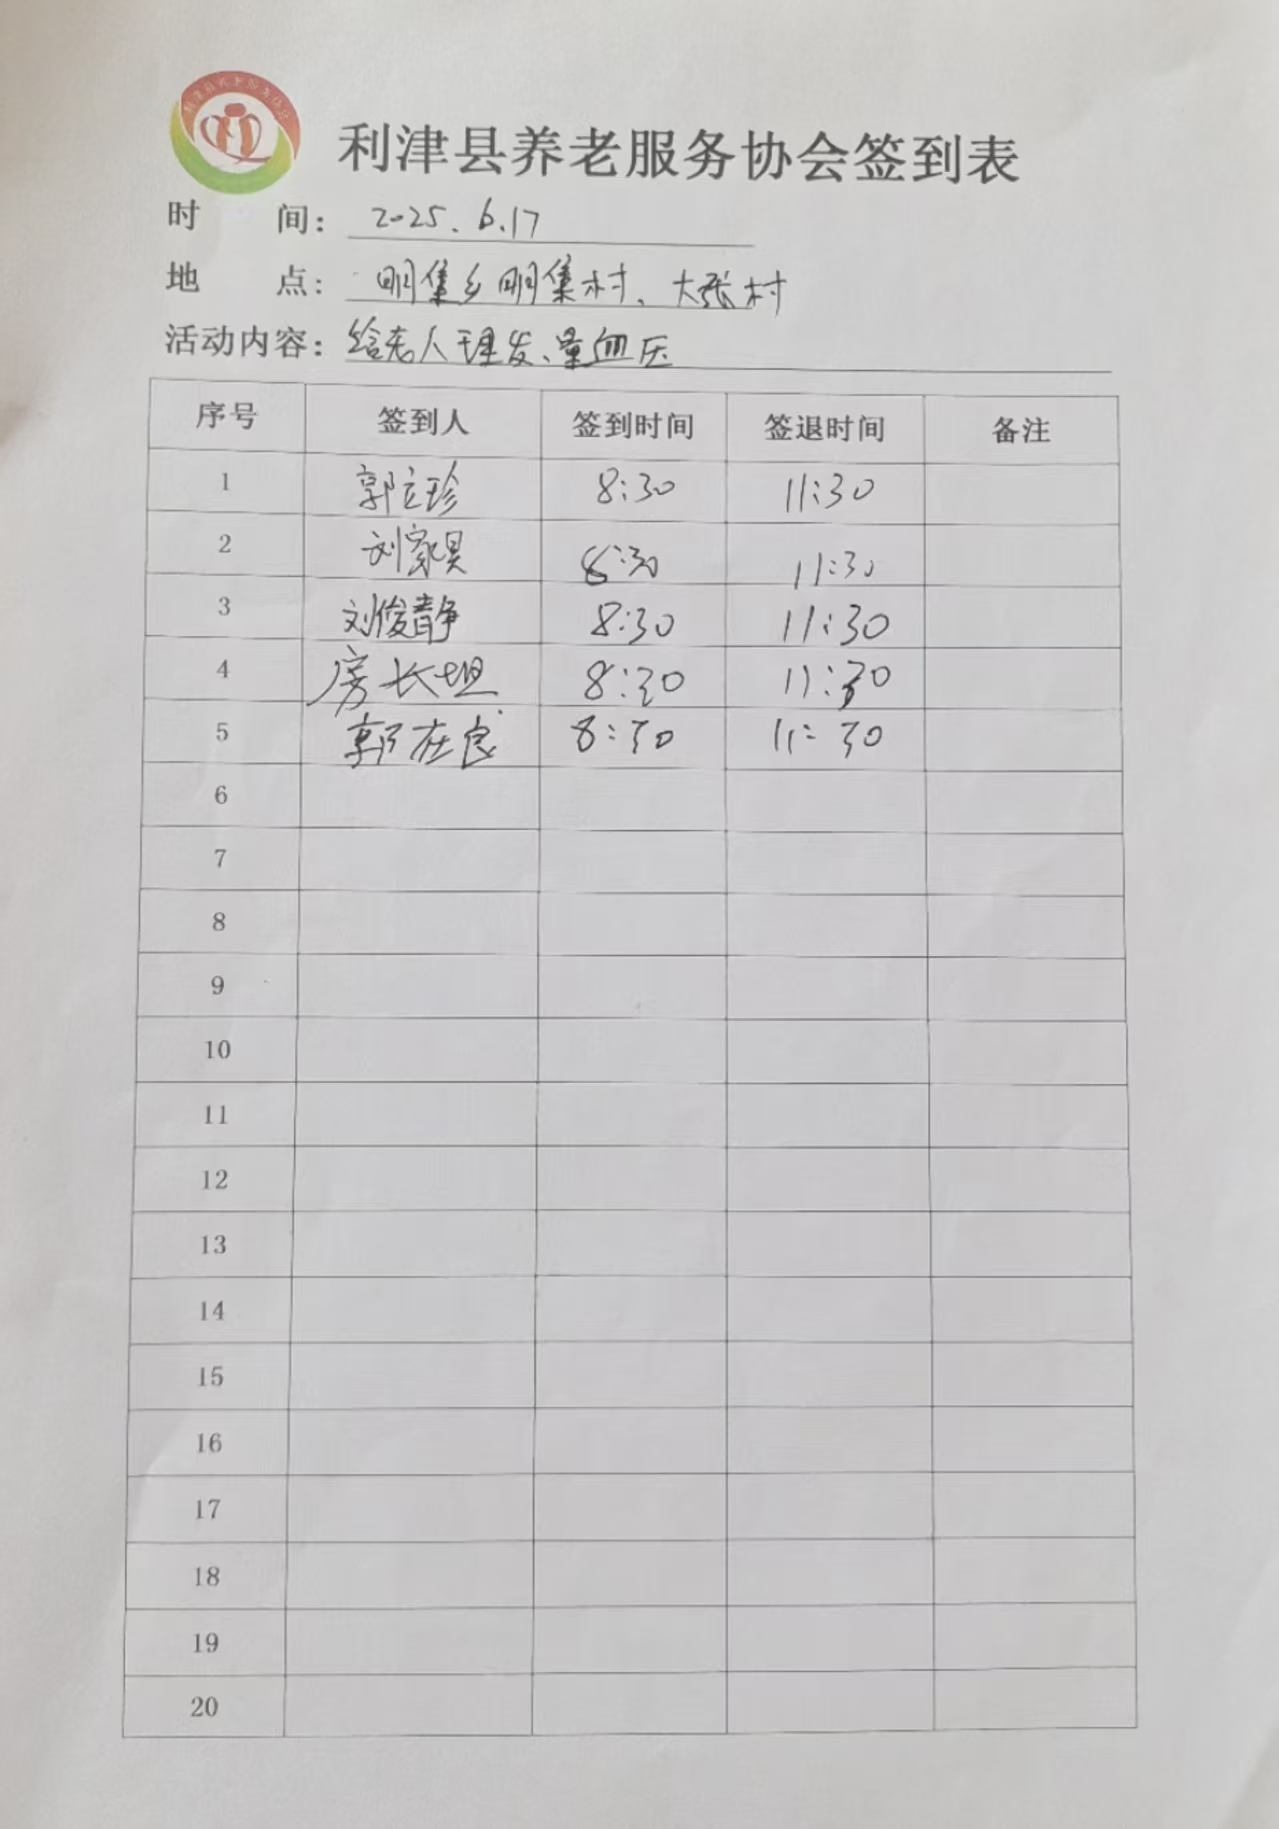 利津县养老服务协会
利津县养老服务协会签到表
时 间: 2025.6.17
地 点: 明集乡明集村、大张村
活动内容: 给老人理发、量血压
序号 签到人 签到时间 签退时间 备注
1 郭立珍 8:30 11:30
2 刘家昊 8:30 11:30
3 刘俊静 8:30 11:30
4 房长坦 8:30 11:30
5 郭在良 8:30 11:30
6
7
8
9
10
11
12
13
14
15
16
17
18
19
20